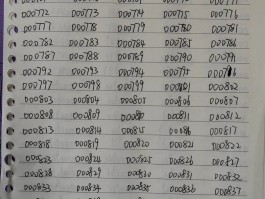 000772 000773 000774 000775 000776
000777 000778 000779 000780 000781
000782 000783 000784 000785 000786
000787 000788 000789 000790 000791
000792 000793 000794 000795
000797 000798 000799 000801 000802
000803 000804 000805 000806 000807
000808 000809 000810 000811 000812
000813 000814 000815 000816 000817
000818 000819 000820 000821 000822
000823 000824 000825 000826 000827
000828 000829 000830 000831 000832
000833 000834 000835 000836 000837